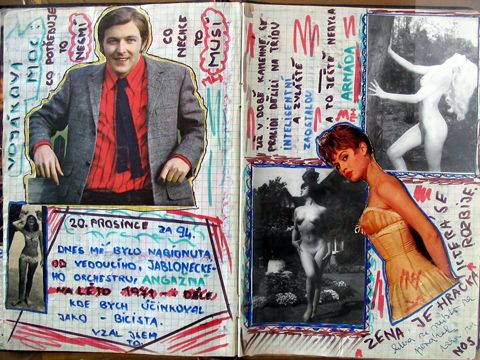 VOJÁKOVA
MOC:
CO POTŘEBUJE
TO
NESMÍ
CO
NECHCE
TO
MUSÍ
20. PROSINCE ZA 94.
DNES MĚ BYLO NABÍDNUTA
OD VEDOUCÍHO, JABLONECKÉ-
HO ORCHESTRU, ANGAŽMÁ
NA LÉTO 1971
KDE BYCH ÚČINKOVAL
JAKO - BICISTA.
VZAL JSEM
TO
UŽ V DOBĚ KAMENNÉ, SE
PRAVIDI DĚLILI NA TŘÍDU
INTELIGENTNÍ
A ZVLÁŠTĚ
ZAOSTALOU
A TO JEŠTĚ NEBYLA
ARMÁDA
!!!
ŽENA JE HRAČKA
KTERÁ SE
ROZBIJE
NOS